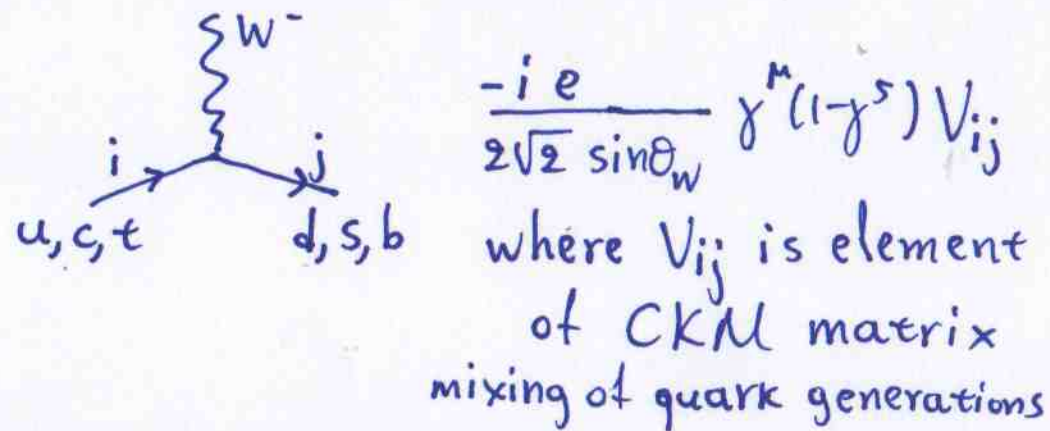 W⁻
i j
u, c, t d, s, b
-i e / 2√2 sinθ_W γ^μ (1-γ^5) V_ij
where V_ij is element
of CKM matrix
mixing of quark generations